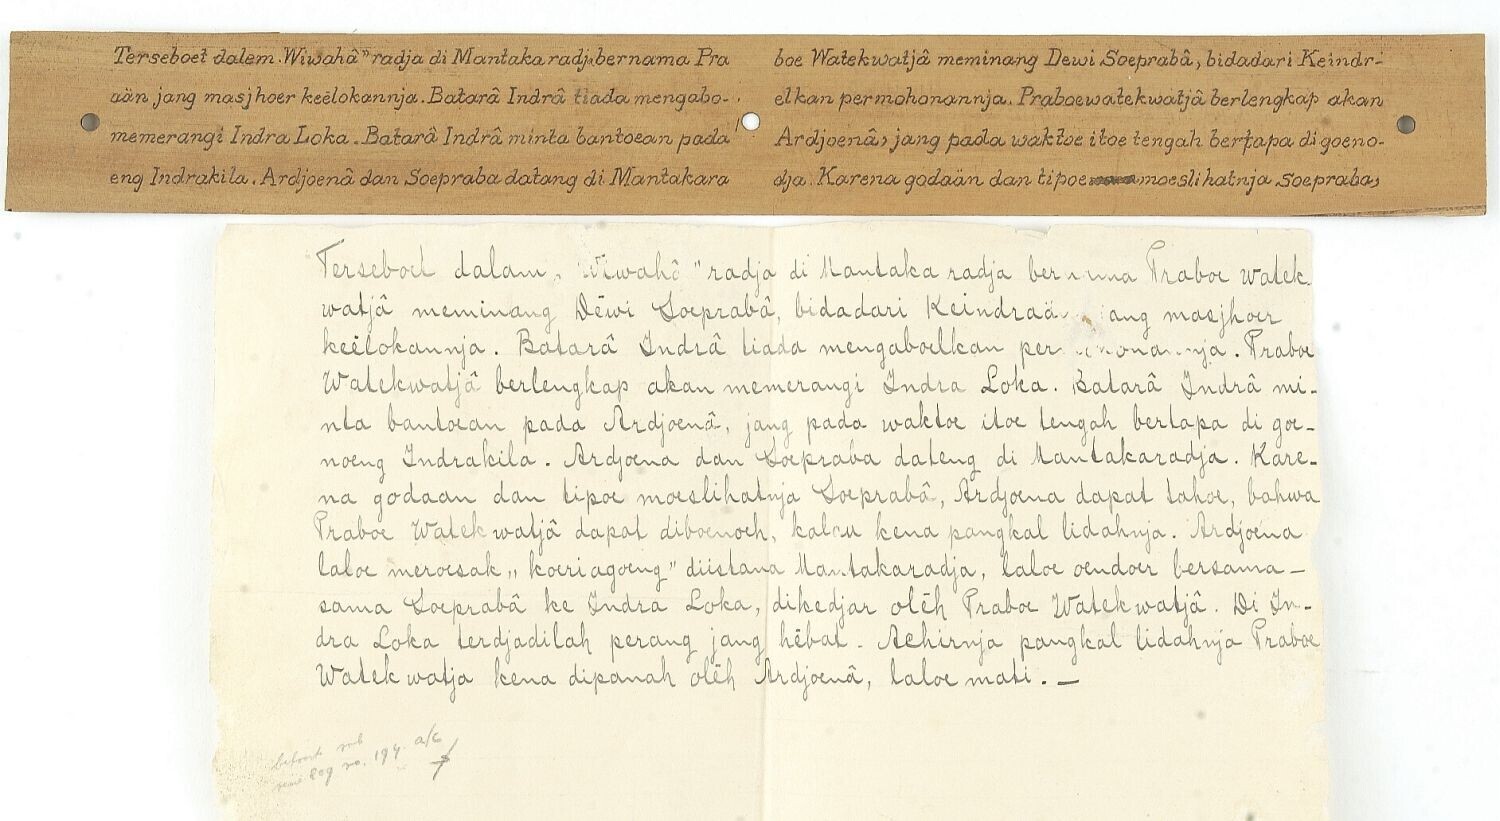 Terseboet dalem „Wiwahâ” radja di Mantaka radja bernama Pra
boe Watekwatjâ meminang Dewi Soeprabâ, bidadari Keindr-
aän jang masjhoer keëlokannja. Batarâ Indrâ tiada mengabo-
elkan permohonannja. Praboewatekwatjâ berlengkap akan
memerangi Indra Loka. Batarâ Indrâ minta bantoean pada
Ardjoenâ, jang pada waktoe itoe tengah bertapa di goeno-
eng Indrakila. Ardjoenâ dan Soepraba datang di Mantakara
dja. Karena godaän dan tipoe moeslihatnja Soepraba,
Terseboet dalam „Wiwahâ” radja di Mantaka radja bernama Praboe watek
watjâ meminang Dēwi Soeprabâ, bidadari Keindraä jang masjhoer
keëlokannja. Batarâ Indrâ tiada mengaboelkan permohonannja. Praboe
Watekwatjâ berlengkap akan memerangi Indra Loka. Batarâ Indrâ mi-
nta bantoean pada Ardjoenâ, jang pada waktoe itoe tengah bertapa di goe-
noeng Indrakila. Ardjoena dan Soepraba dateng di Mantakaradja. Kare-
na godaan dan tipoe moeslihatnja Soeprabâ, Ardjoena dapat tahoe, bahwa
Praboe Watekwatjâ dapat diboenoeh, kalau kena pangkal lidahnja. Ardjoena
laloe meroesak „koeriagoeng” diistana Mantakaradja, laloe oendoer bersama-
sama Soeprabâ ke Indra Loka, dikedjar olēh Praboe Watekwatjâ. Di In-
dra Loka terdjadilah perang jang hēbat. Achirnja pangkal lidahnja Praboe
Watekwatja kena dipanah olēh Ardjoenâ, laloe mati. —
no. 194. a/c